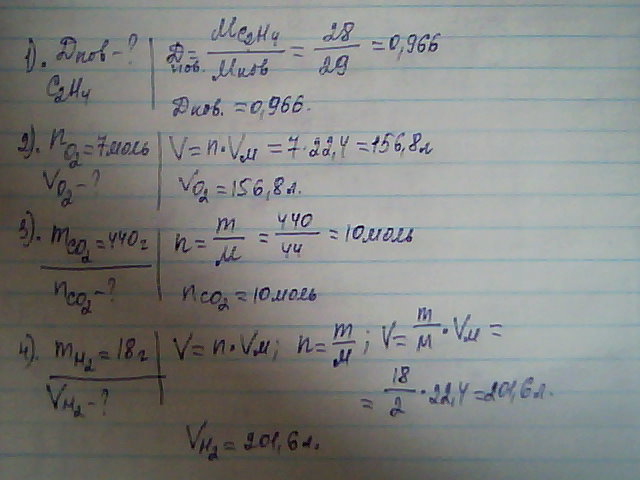 1). Dпов - ? D пов. = M C₂H₄ / Mпов = 28 / 29 = 0,966
C₂H₄ Dпов. = 0,966.
2). n O₂ = 7 моль V = n · Vм = 7 · 22,4 = 156,8 л
V O₂ - ? V O₂ = 156,8 л.
3). m CO₂ = 440 г n = m / M = 440 / 44 = 10 моль
n CO₂ - ? n CO₂ = 10 моль
4). m H₂ = 18 г V = n · Vм; n = m / M; V = m / M · Vм =
V H₂ - ? = 18 / 2 · 22,4 = 201,6 л.
V H₂ = 201,6 л.